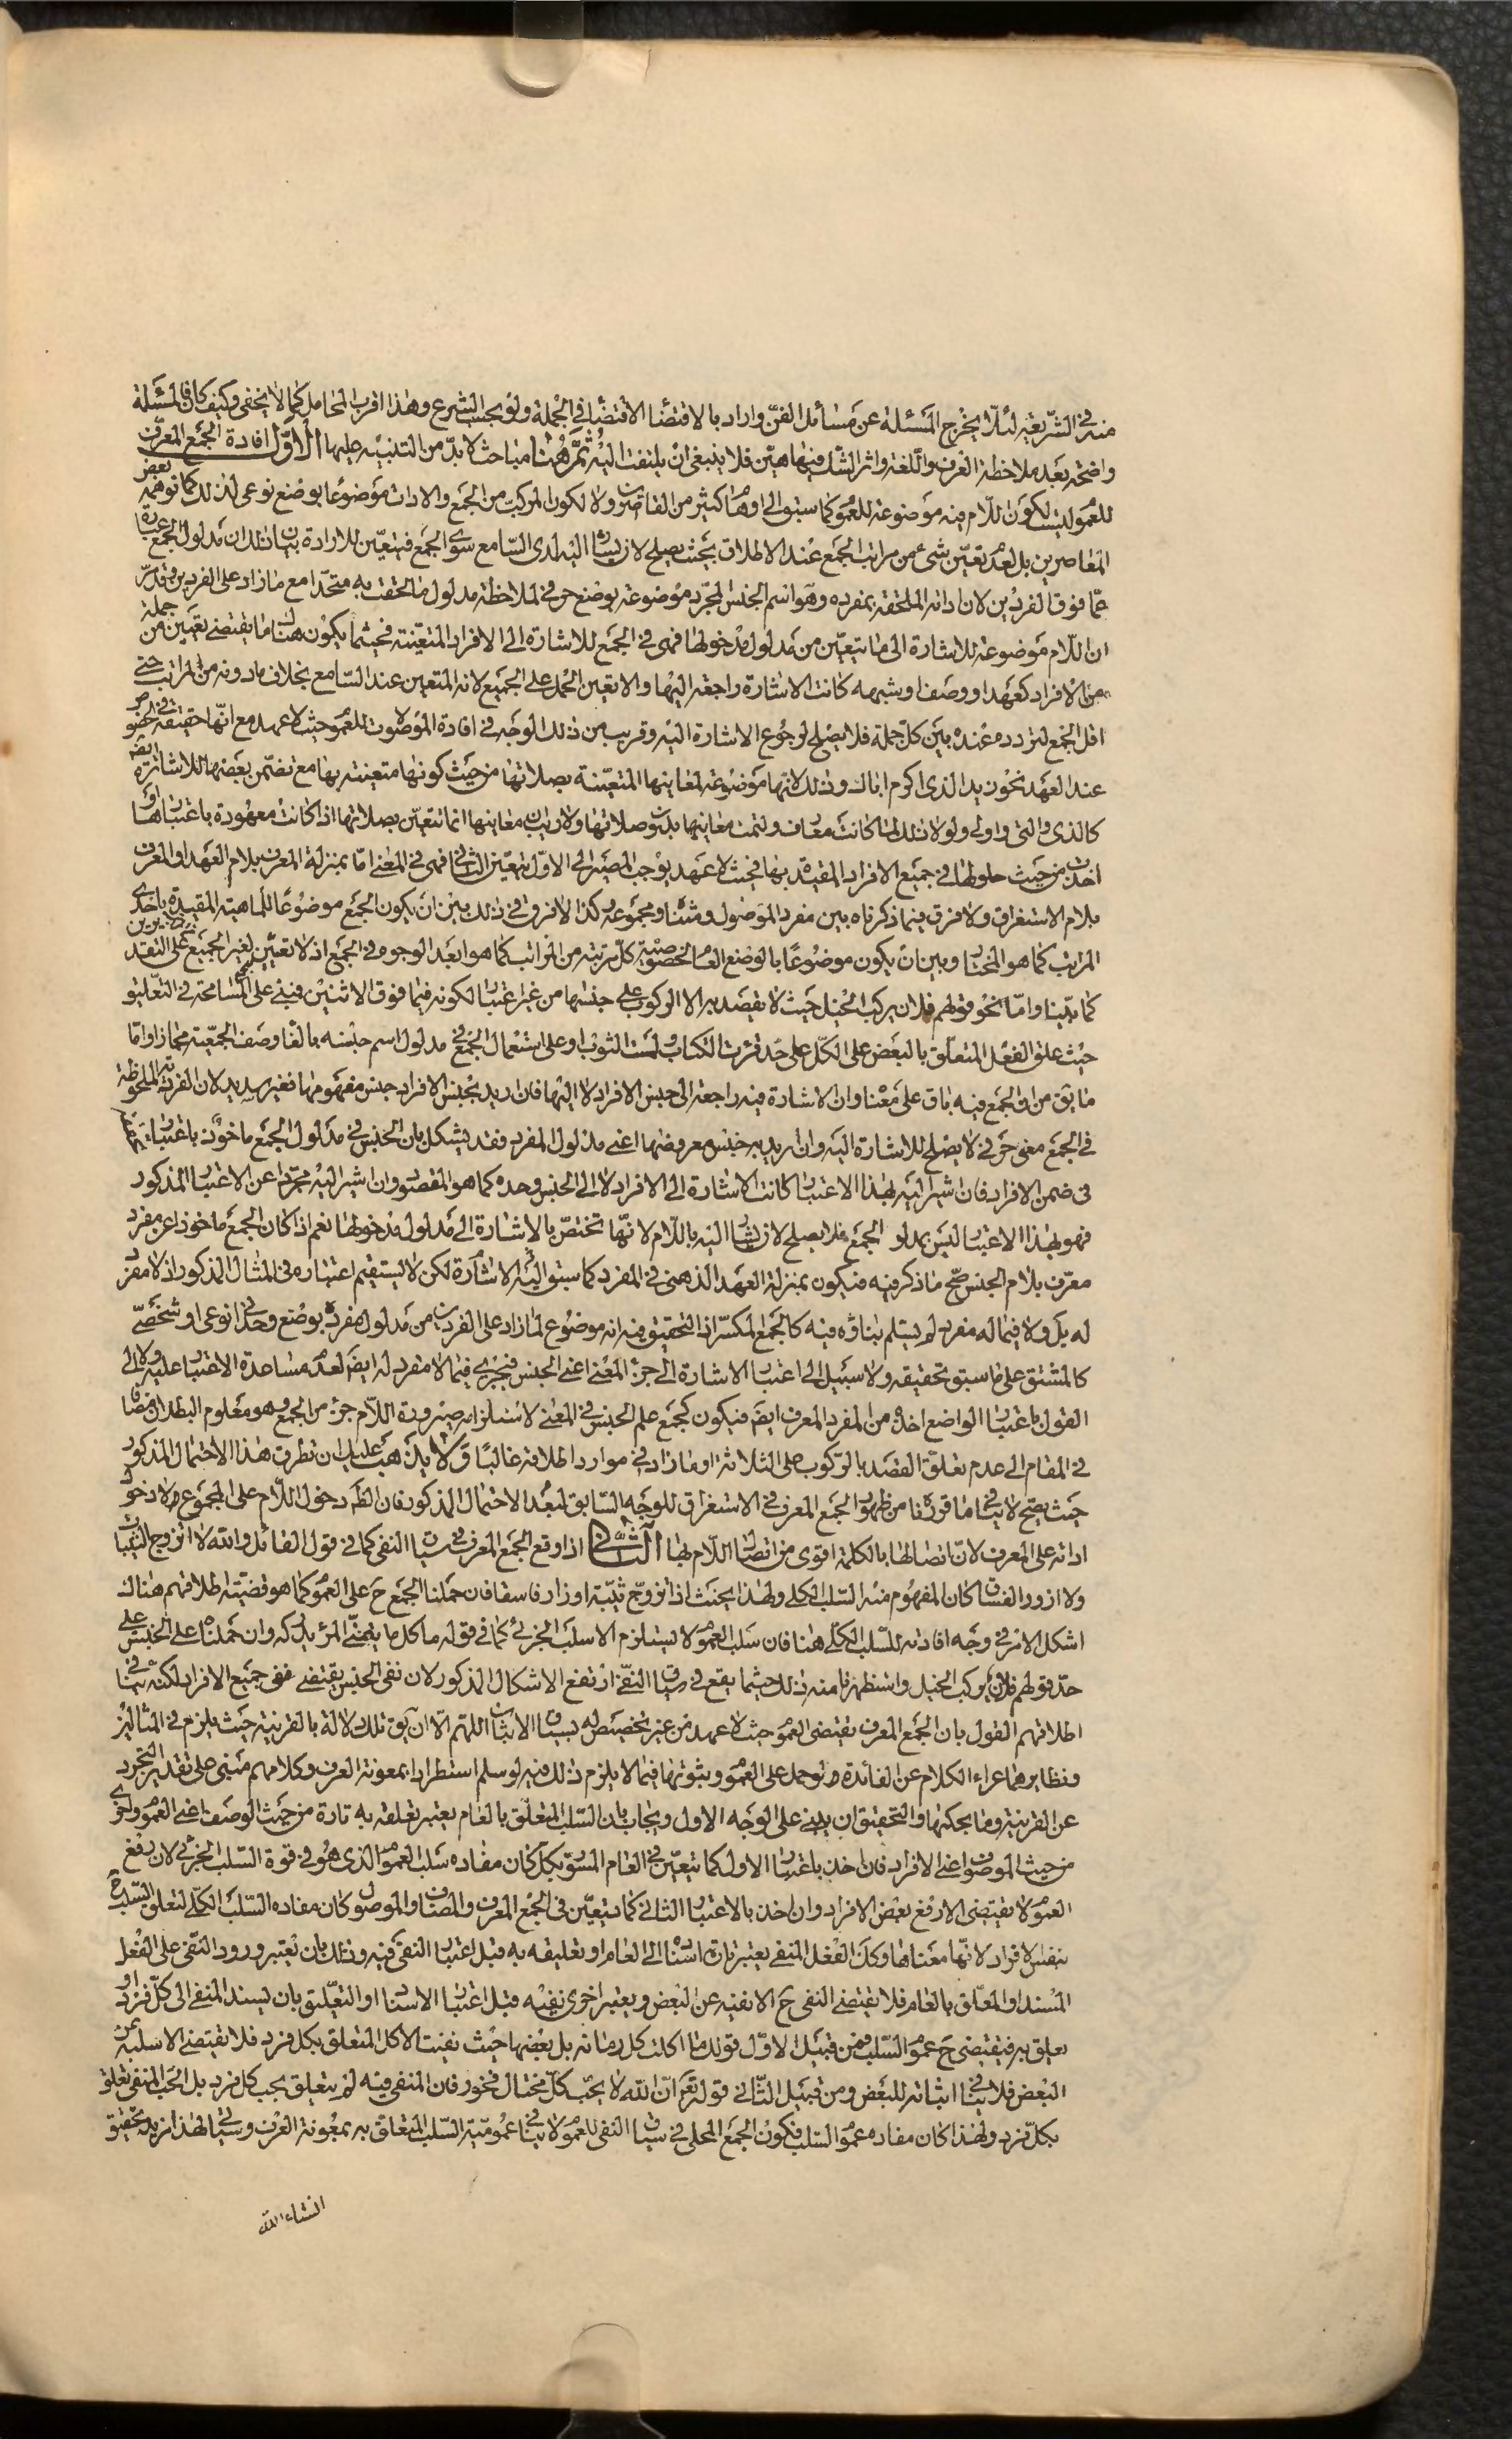 منه في الشريعة لئلا يخرج المسئلة عن مسائل الفن واراد بالاقتضاء الاقتضاء في الجملة ولو بحسب الشرع وهذا اقرب المحامل كما لا يخفى وكيف كان فالمسئلة
واضحة بعد ملاحظة العرف واللغة واثر الشك فيها هين فلا ينبغي ان يلتفت اليه ثم هنا مباحث لا بد من التنبيه عليها الاول افادة الجمع المعرف
للعموم ليست لكون اللام فيه موضوعة للعموم كما سبق الى اوهام كثير من القاصرين ولا لكون المركب من الجمع والاداة موضوعا بوضع نوعي لذلك كما توهمه بعض
المعاصرين بل لعدم تعين شيء من مراتب الجمع عند الاطلاق بحيث يصلح لان يشار اليه لدى السامع سوى الجمع فيتعين للارادة بيان ذلك ان مدلول الجمع عبارة
عما فوق الفردين لان اداته الملحقة بمفرده وهو اسم الجنس المجرد موضوعة بوضع حرفي لملاحظة مدلول ما لحقت به متحدا مع ما زاد على الفردين وقد مر
ان اللام موضوعة للاشارة الى ما تتعين من مدلول مدخولها فهي في الجمع للاشارة الى الافراد المتعينة فحيثما يكون هناك ما يقتضي تعيين جملة من
من الافراد كعهد او وصف او شبهه كانت الاشارة راجعة اليها والا تعين الحمل على الجميع لانه المتعين عند السامع بخلاف ما دونه من المراتب حتى
اقل الجمع لتردده عنده بين كل جملة فلا يصلح لرجوع الاشارة اليه وقريب من ذلك الوجه في افادة الموصولات للعموم حيث لا عهد مع انها حقيقة في خصوص
عند العهد نحو زيد الذي اكرم اباك وذلك لانها موضوعة لمعانيها المتعينة بصلاتها من حيث كونها متعينة بها مع تضمن بعضها للاشارة ايضا
كالذي والتي واولي ولولا ذلك لما كانت معارف ولتمت معانيها بدون صلاتها ولا ريب ان معانيها انما تتعين بصلاتها اذا كانت معهودة باعتبارها او
اخذت من حيث حلولها في جميع الافراد المقيدة بها فحيث لا عهد يوجب المصير الى الاول يتعين الثاني فهي في المعنى اما بمنزلة المعرف بلام العهد او المعرف
بلام الاستغراق ولا فرق فيما ذكرناه بين مفرد الموصول ومثناه ومجموعه وكذا لا فرق في ذلك بين ان يكون الجمع موضوعا للماهية المقيدة باحدى
المراتب كما هو المختار وبين ان يكون موضوعا بالوضع العام لخصوصية كل مرتبة من المراتب كما هو ابعد الوجوه في الجمع اذ لا تعين لغير الجميع على التقديرين
كما بينا واما نحو قولهم فلان يركب الخيل حيث لا يقصد به الا الركوب على جنسها من غير اعتبار لكونه فيما فوق الاثنين فمبني على المسامحة في التعليق
حيث علق الفعل المتعلق بالبعض على الكل على حد قرئت الكتاب ولمست الثوب او على استعمال الجمع في مدلول اسم جنسه بالغاء وصف الجمعية مجازا واما
ما يق من ان الجمع فيه باق على معناه وان الاشارة فيه راجعة الى جنس الافراد لا اليها فان اريد بجنس الافراد جنس مفهومها فغير سديد لان الفردية الملحوظة
في الجمع معنى حرفي لا يصلح للاشارة اليه وان اريد به جنس معروضها اعني مدلول المفرد فقد يشكل بان الجنس في مدلول الجمع ماخوذ باعتبار
في ضمن الافراد فان اشير اليه بهذا الاعتبار كانت الاشارة الى الافراد لا الى الجنس وحده كما هو المقصود وان اشير اليه مجردا عن الاعتبار المذكور
فهو بهذا الاعتبار ليس بمدلول الجمع فلا يصلح لان يشار اليه باللام لانها تختص بالاشارة الى مدلول مدخولها نعم اذا كان الجمع ماخوذا عن مفرد
معرف بلام الجنس صح ما ذكر فيه فيكون بمنزلة العهد الذهني في المفرد كما سبق اليه الاشارة لكن لا يستقيم اعتباره في المثال المذكور اذ لا مفرد
له بل ولا فيما له مفرد لم يسلم بناؤه فيه كالجمع المكسر اذ التحقيق فيه انه موضوع لما زاد على الفردين من مدلول مفرده بوضع وحداني نوعي او شخصي
كالمشتق على ما سبق تحقيقه ولا سبيل الى اعتبار الاشارة الى جزء المعنى اعني الجنس فيجري فيما لا مفرد له ايضا لعدم مساعدة الاعتبار عليه ولا الى
القول باعتبار الواضع اخذه من المفرد المعرف ايضا فيكون كجمع علم الجنس في المعنى لاستلزامه صيرورة اللام جزء من الجمع وهو معلوم البطلان مضافا
في المقام الى عدم تعلق القصد بالركوب على الثلاثة او ما زاد في موارد اطلاقه غالبا ولا يذهب عليك ان تطرق هذا الاحتمال المذكور
حيث يصح لا ينافي ما قررنا من ظهور الجمع المعرف في الاستغراق للوجه السابق لبعد الاحتمال المذكور فان الظاهر دخول اللام على المجموع لا دخول
اداته على المعرف لان اتصالها بالكلمة اقوى من اتصال اللام بها الثاني اذا وقع الجمع المعرف في سياق النفي كما في قول القائل والله لا اتزوج الثيبات
ولا ازور الفساق كان المفهوم منه السلب الكلي ولهذا يحنث اذا تزوج ثيبة او زار فاسقا فان حملنا الجمع ح على العموم كما هو قضية اطلاقهم هناك
اشكل الامر في وجه افادته للسلب الكلي هنا فان سلب العموم لا يستلزم الا سلب الجزئي كما في قوله ما كل ما يتمنى المرء يدركه وان حملناه على الجنس على
حد قولهم فلان يركب الخيل واستظهرنا منه ذلك حيثما يقع في سياق النفي ارتفع الاشكال المذكور لان نفي الجنس يقتضي نفي جميع الافراد لكنه ينافي
اطلاقهم القول بان الجمع المعرف يقتضي العموم حيث لا عهد من غير تخصيص له بسياق الاثبات اللهم الا ان يق تلك الدلالة بالقرينة حيث يلزم في المثالين
ونظايرهما عراء الكلام عن الفائدة لو حمل على العموم وثبوتها فيما لا يلزم ذلك فيه لو سلم استطرادا بمعونة العرف وكلامهم مبني على تقدير التجرد
عن القرينة وما بحكمها والتحقيق ان يبنى على الوجه الاول ويجاب بان السلب المتعلق بالعام يعتبر تعلقه به تارة من حيث الوصف اعني العموم واخرى
من حيث الموصوف اعني الافراد فان اخذ باعتبار الاول كما يتعين في العام المسور بكل كان مفاده سلب العموم الذي هو في قوة السلب الجزئي لان رفع
العموم لا يقتضي الا رفع بعض الافراد وان اخذ بالاعتبار الثاني كما يتعين في الجمع المعرف والمضاف والموصول كان مفاده السلب الكلي لتعلق السلب ح
بنفس الافراد لانها معناها وكك الفعل المنفي يعتبر تارة اسناده الى العام او تعليقه به قبل اعتبار النفي فيه وذلك بان يعتبر ورود النفي على الفعل
المسند او المعلق بالعام فلا يقتضي النفي ح الا نفيه عن البعض ويعتبر اخرى نفيه قبل اعتبار الاسناد او التعليق بان يسند المنفي الى كل فرد او
يعلق به فيقتضي ح عموم السلب فمن قبيل الاول قولك ما اكلت كل رمانة بل بعضها حيث نفيت الاكل المتعلق بكل فرد فلا يقتضي الا سلبه عن
البعض فلا ينافي اثباته للبعض ومن قبيل الثاني قوله تعالى ان الله لا يحب كل مختال فخور فان المنفي فيه لم يتعلق بحب كل فرد بل الحب المنفي تعلق
بكل فرد ولهذا كان مفاده عموم السلب فكون الجمع المحلى في سياق النفي للعموم لا ينافي عمومية السلب المتعلق به بمعونة العرف وسياتي لهذا مزيد تحقيق
انشاء الله